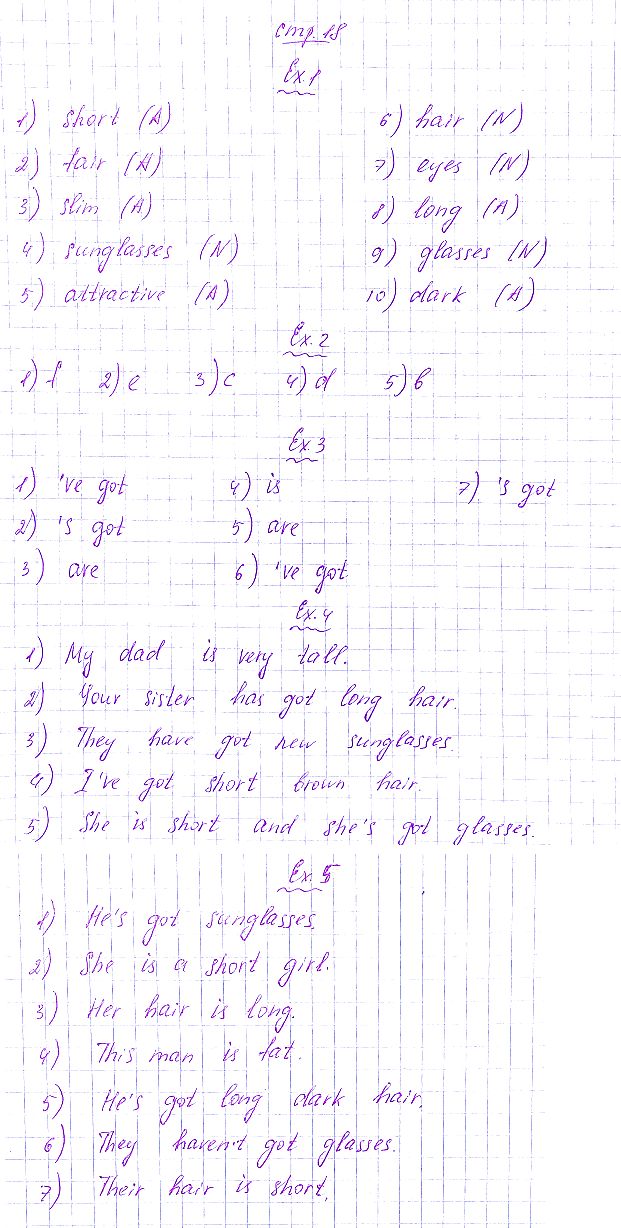 стр. 18
Ex. 1
1) short (A) 6) hair (N)
2) fair (A) 7) eyes (N)
3) slim (A) 8) long (A)
4) sunglasses (N) 9) glasses (N)
5) attractive (A) 10) dark (A)
Ex. 2
1) f 2) e 3) c 4) d 5) b
Ex. 3
1) 've got 4) is 7) 's got
2) 's got 5) are
3) are 6) 've got
Ex. 4
1) My dad is very tall.
2) Your sister has got long hair.
3) They have got new sunglasses.
4) I've got short brown hair.
5) She is short and she's got glasses.
Ex. 5
1) He's got sunglasses.
2) She is a short girl.
3) Her hair is long.
4) This man is fat.
5) He's got long dark hair.
6) They haven't got glasses.
7) Their hair is short.